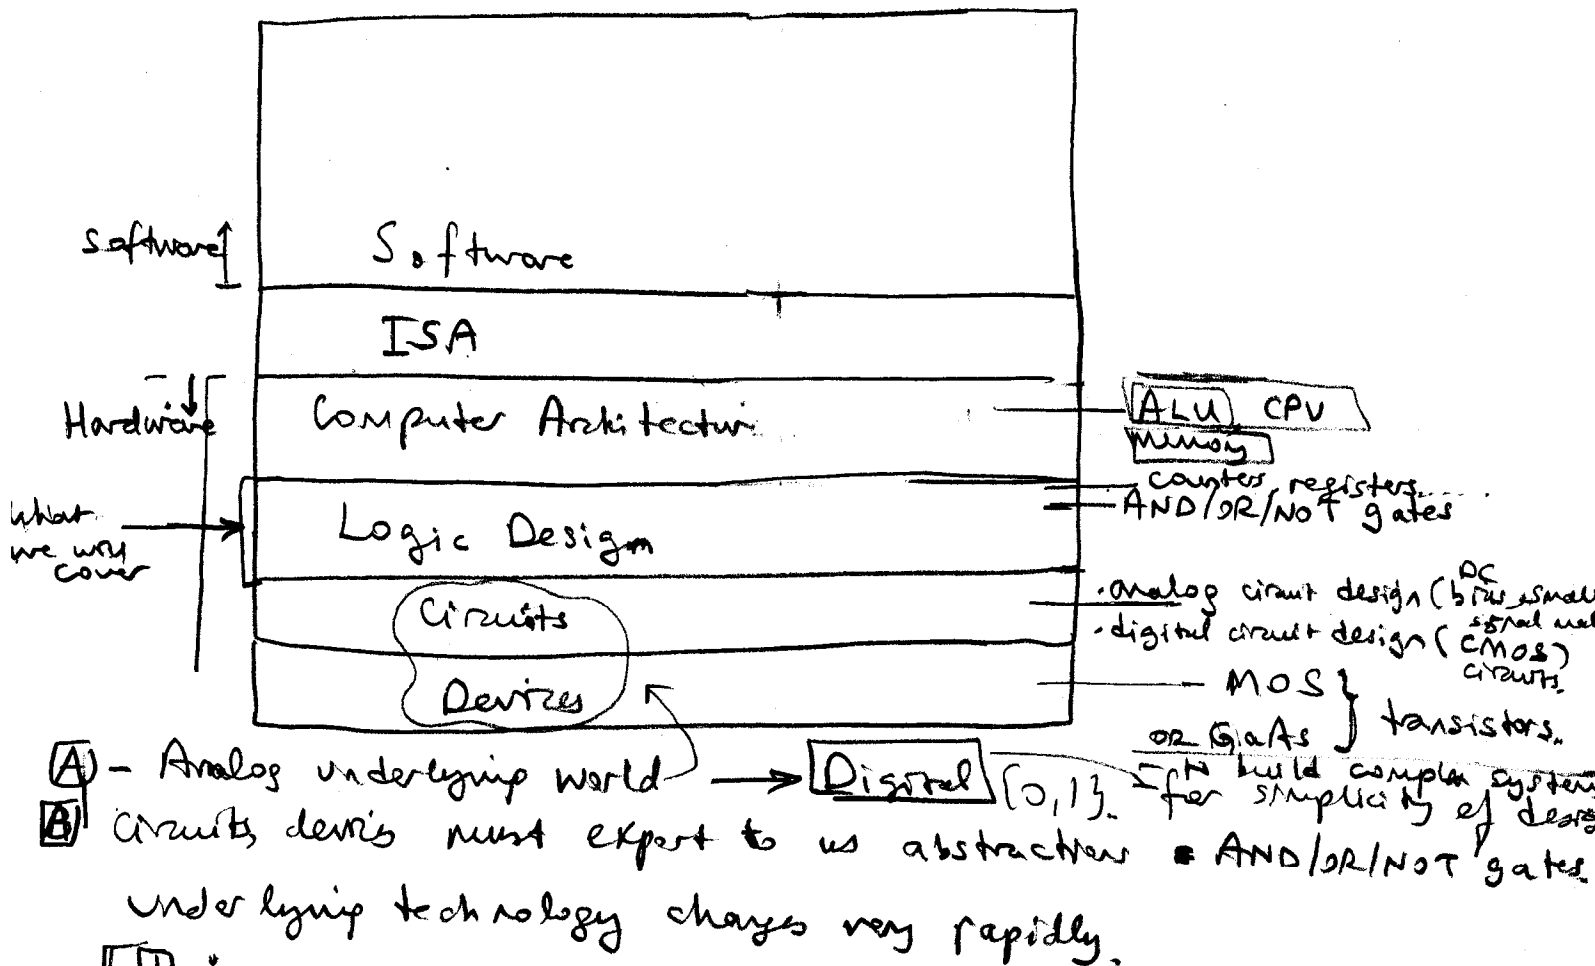 Software
Software
ISA
Hardware
Computer Architectur
ALU CPU
Memory
counters registers.....
AND/OR/NOT gates
what
we will
cover
Logic Design
Circuits
• analog circuit design (DC bias, small
signal
• digital circuit design (CMOS)
circuits.
Devices
MOS
or GaAs
} transistors.
A - Analog underlying world → Digital {0,1}.
- to build complex system
for simplicity of
B Circuits, must export to us abstraction AND/OR/NOT gates
underlying technology changes very rapidly.